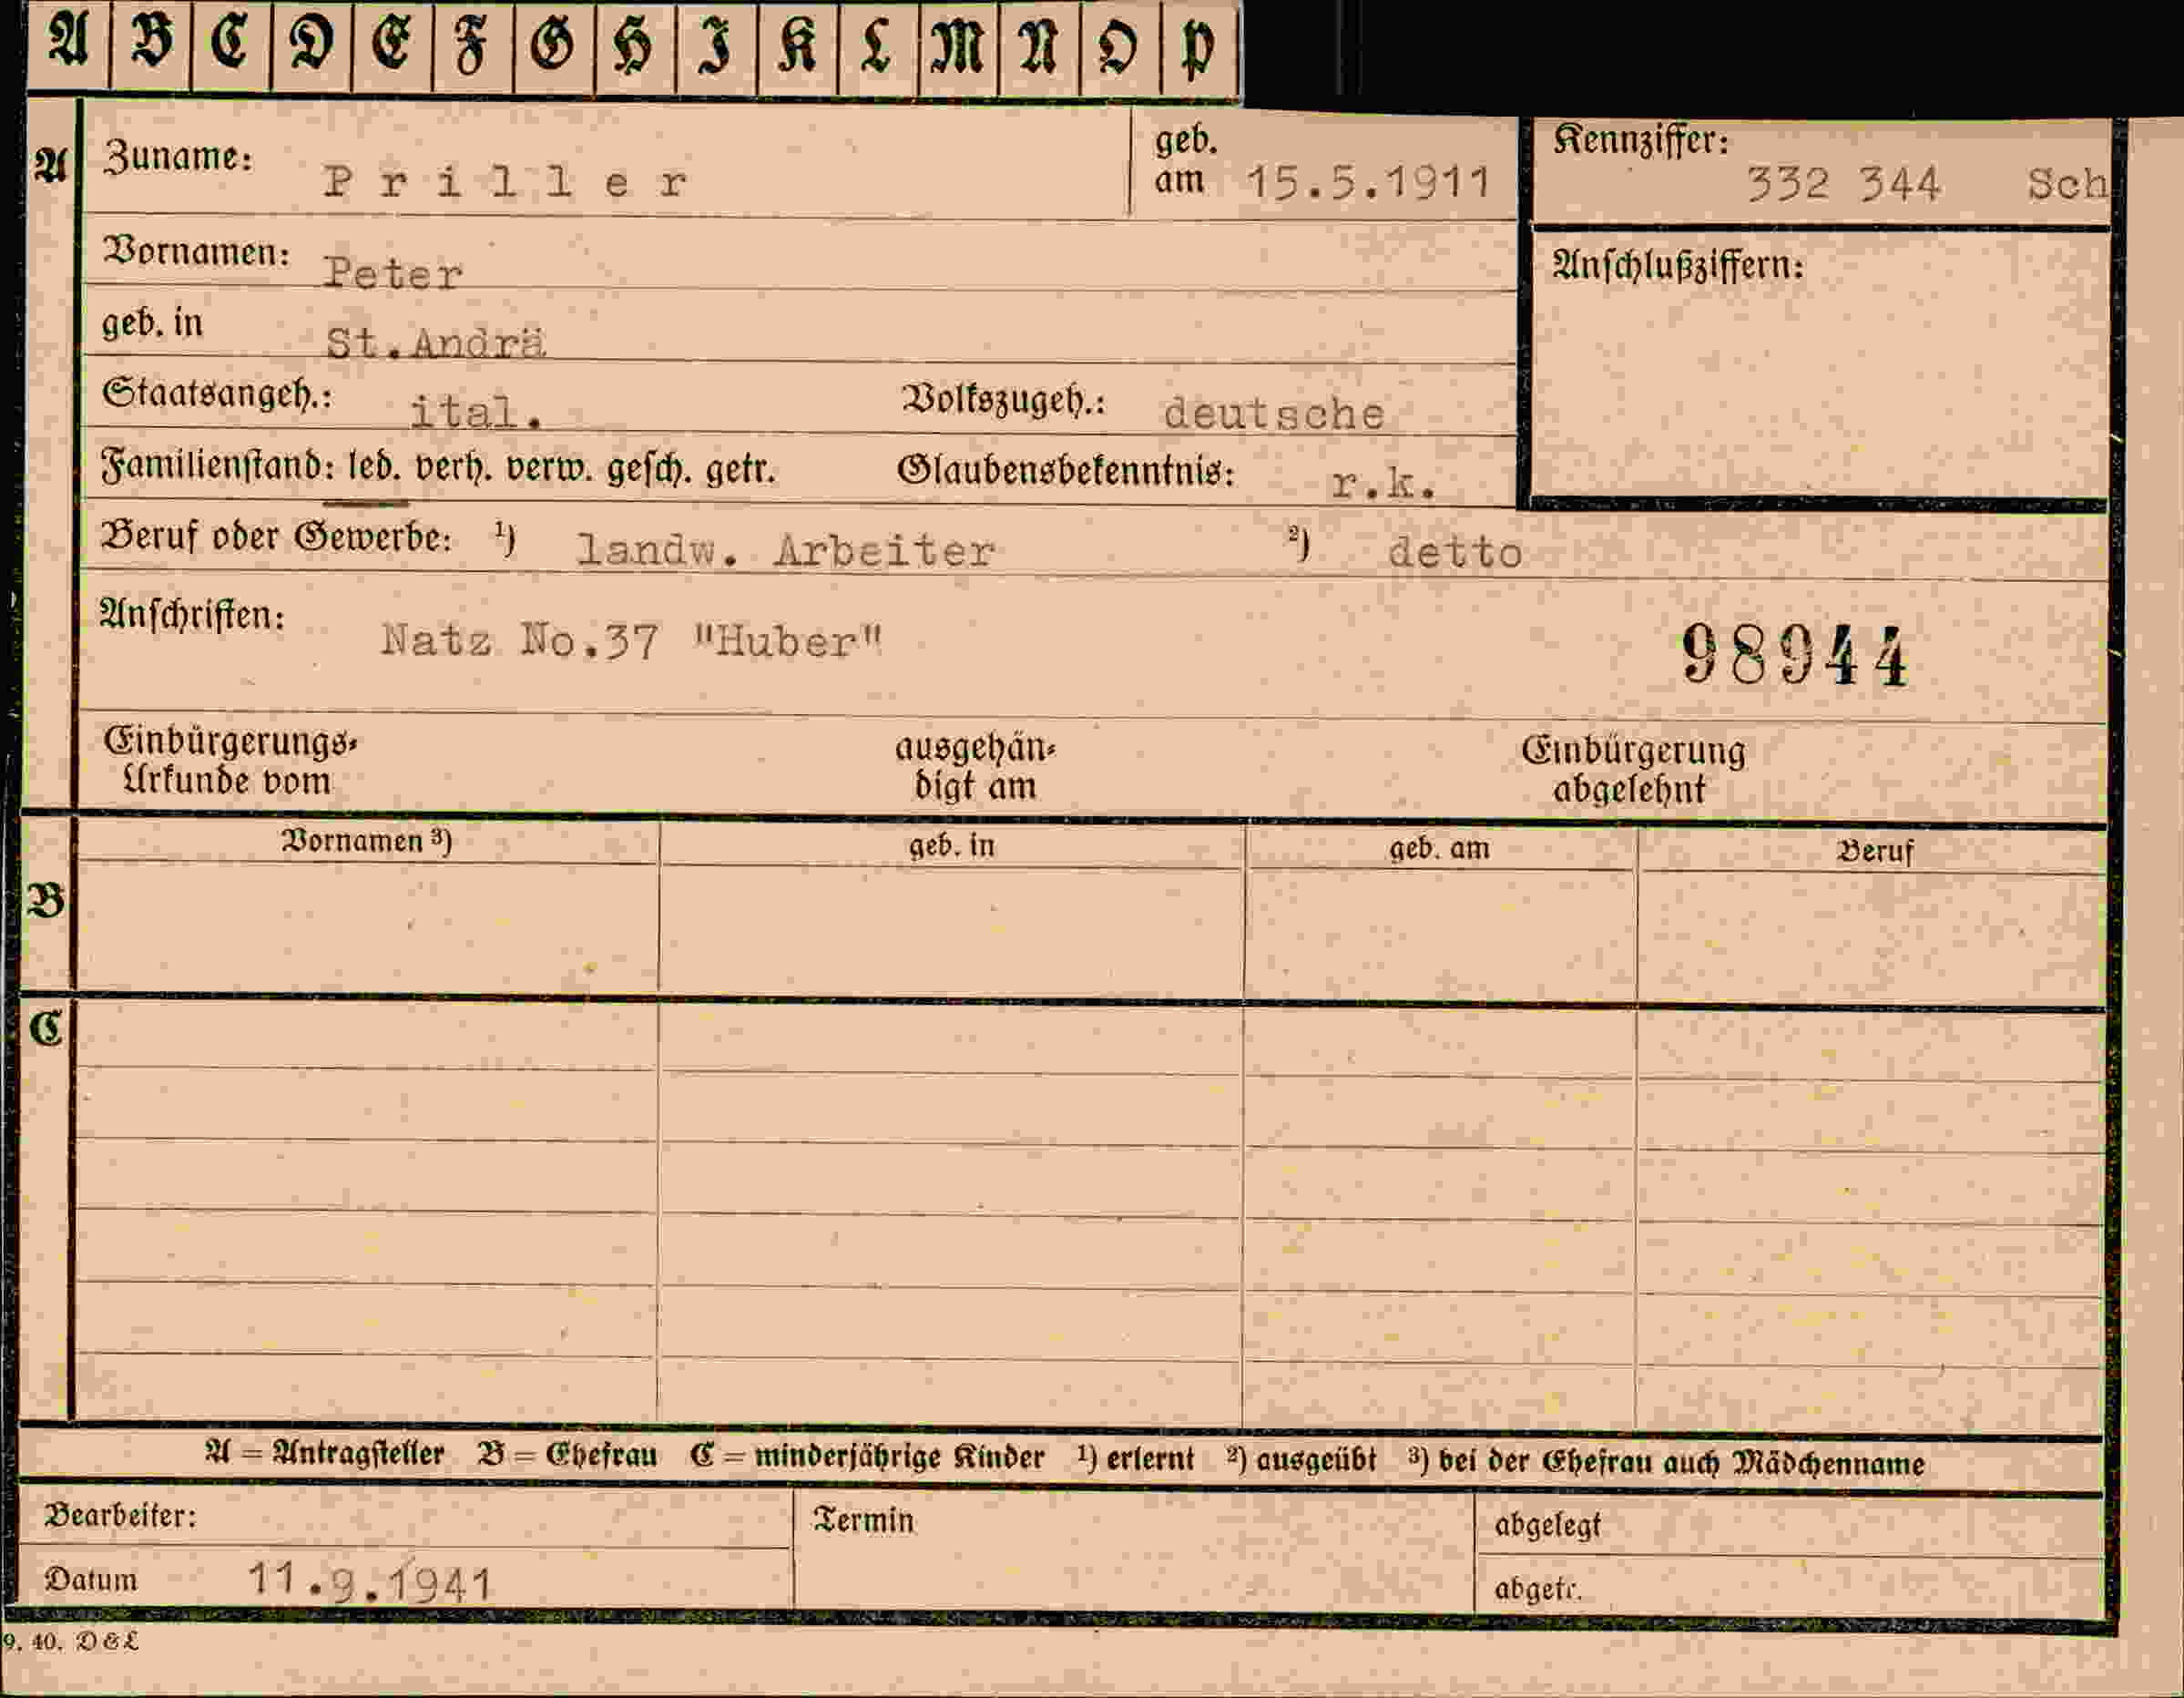 A B C D E F G H I K L M N O P
A Zuname: Priller geb. am 15.5.1911 Kennziffer: 332 344 Sch
Vornamen: Peter Anschlußziffern:
geb. in St.Andrä
Staatsangeh.: ital. Volkszugeh.: deutsche
Familienstand: led. verh. verw. gesch. getr. Glaubensbekenntnis: r.k.
Beruf oder Gewerbe: 1) landw. Arbeiter 2) detto
Anschriften: Natz No.37 "Huber" 98944
Einbürgerungs- ausgehän- Einbürgerung
Urkunde vom digt am abgelehnt
Vornamen 3) geb. in geb. am Beruf
B
C
A = Antragsteller B = Ehefrau C = minderjährige Kinder 1) erlernt 2) ausgeübt 3) bei der Ehefrau auch Mädchenname
Bearbeiter: Termin abgelegt
Datum 11.9.1941 abgetr.
9. 40. D & L